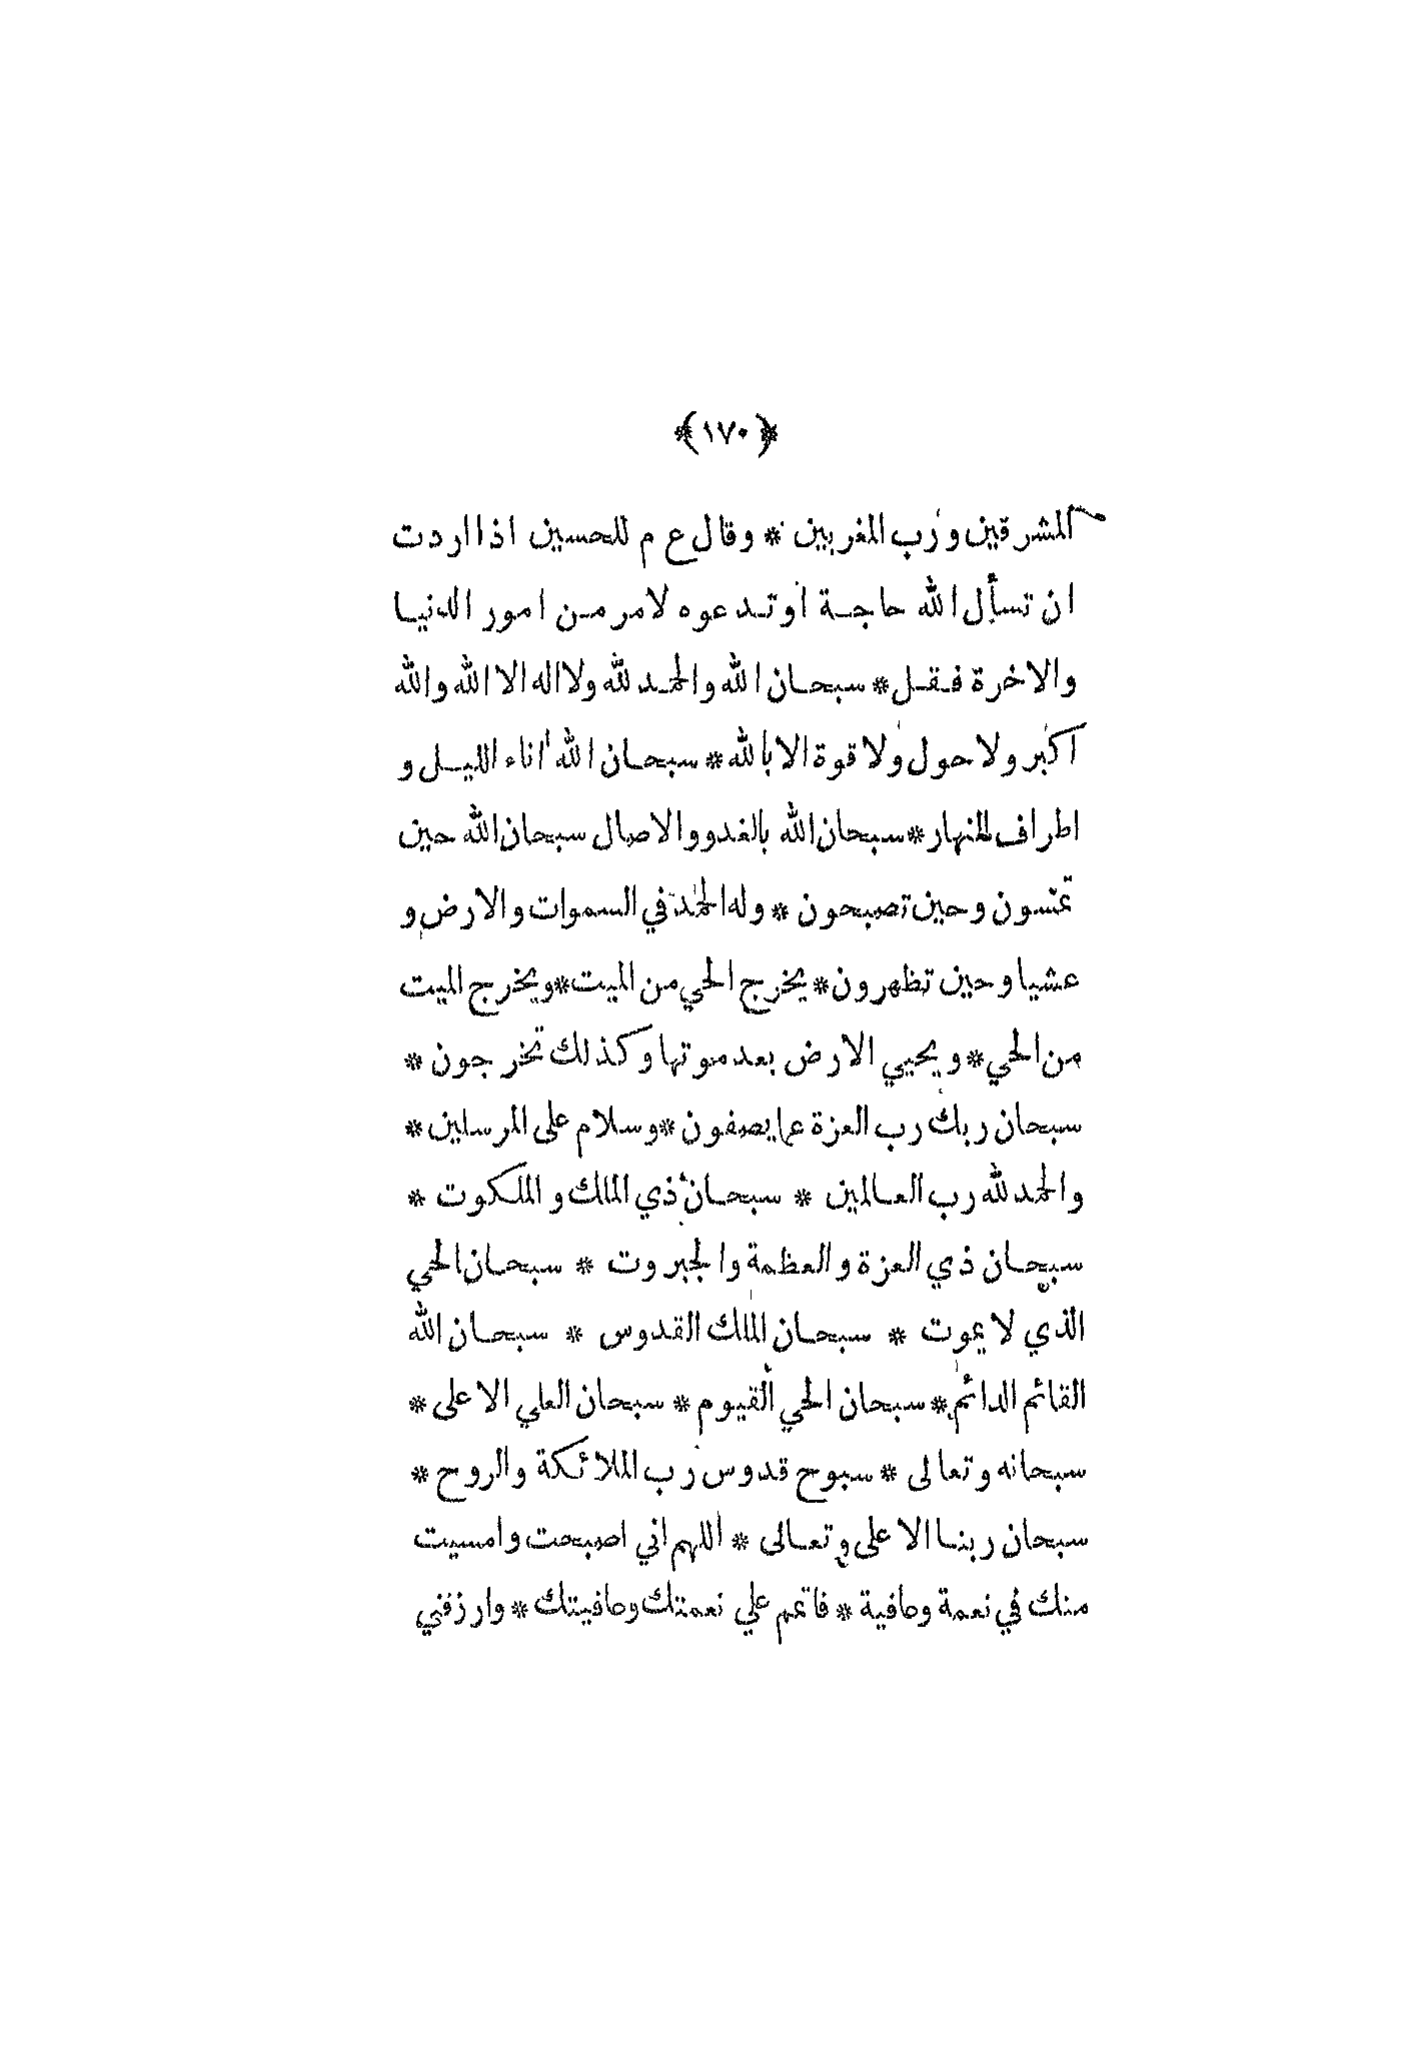 ﴿١٧٠﴾
المشرقين ورب المغربين * وقال ع م للحسين اذا اردت
ان تسأل الله حاجة او تدعوه لامر من امور الدنيا
والاخرة فقل * سبحان الله والحمد لله ولا اله الا الله والله
اكبر ولا حول ولا قوة الا بالله * سبحان الله اناء الليل و
اطراف النهار * سبحان الله بالغدو والاصال سبحان الله حين
تمسون وحين تصبحون * وله الحمد في السموات والارض و
عشيا وحين تظهرون * يخرج الحي من الميت * ويخرج الميت
من الحي * ويحيي الارض بعد موتها وكذلك تخرجون *
سبحان ربك رب العزة عما يصفون * وسلام على المرسلين *
والحمد لله رب العالمين * سبحان ذي الملك والملكوت *
سبحان ذي العزة والعظمة والجبروت * سبحان الحي
الذي لا يموت * سبحان الملك القدوس * سبحان الله
القائم الدائم * سبحان الحي القيوم * سبحان العلي الاعلى *
سبحانه وتعالى * سبوح قدوس رب الملائكة والروح *
سبحان ربنا الاعلى وتعالى * اللهم اني اصبحت وامسيت
منك في نعمة وعافية * فاتمم علي نعمتك وعافيتك * وارزقني